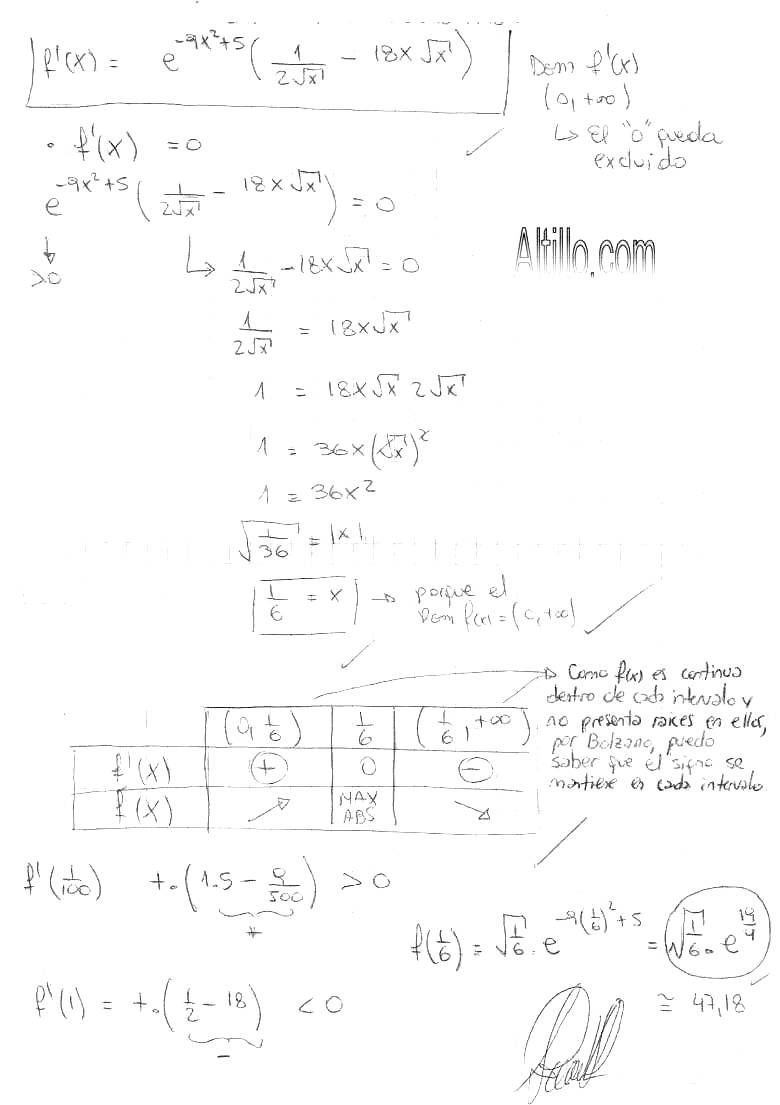 f'(x) = e^{-9x²+5} ( 1/(2√x) - 18x √x )
Dom f'(x)
(0, +∞)
↳ El "0" queda
excluido
• f'(x) = 0
e^{-9x²+5} ( 1/(2√x) - 18x √x ) = 0
↓
>0
↳ 1/(2√x) - 18x√x = 0
Altillo.com
1/(2√x) = 18x√x
1 = 18x√x 2√x
1 = 36x(√x)²
1 = 36x²
√(1/36) = |x|
1/6 = x → porque el
Dom f(x) = (0, +∞)
→ Como f(x) es continua
dentro de cada intervalo y
no presenta raíces en ellos,
por Bolzano, puedo
saber que el signo se
mantiene en cada intervalo
(0, 1/6) 1/6 (1/6, +∞)
f'(x) + 0 -
f(x) ↗ MAX ABS ↘
f'(1/100) +. (1.5 - 9/500) > 0
+
f(1/6) = √(1/6) . e^{-9(1/6)²+5} = √(1/6) . e^{19/4}
≅ 47,18
f'(1) = +. (1/2 - 18) < 0
-